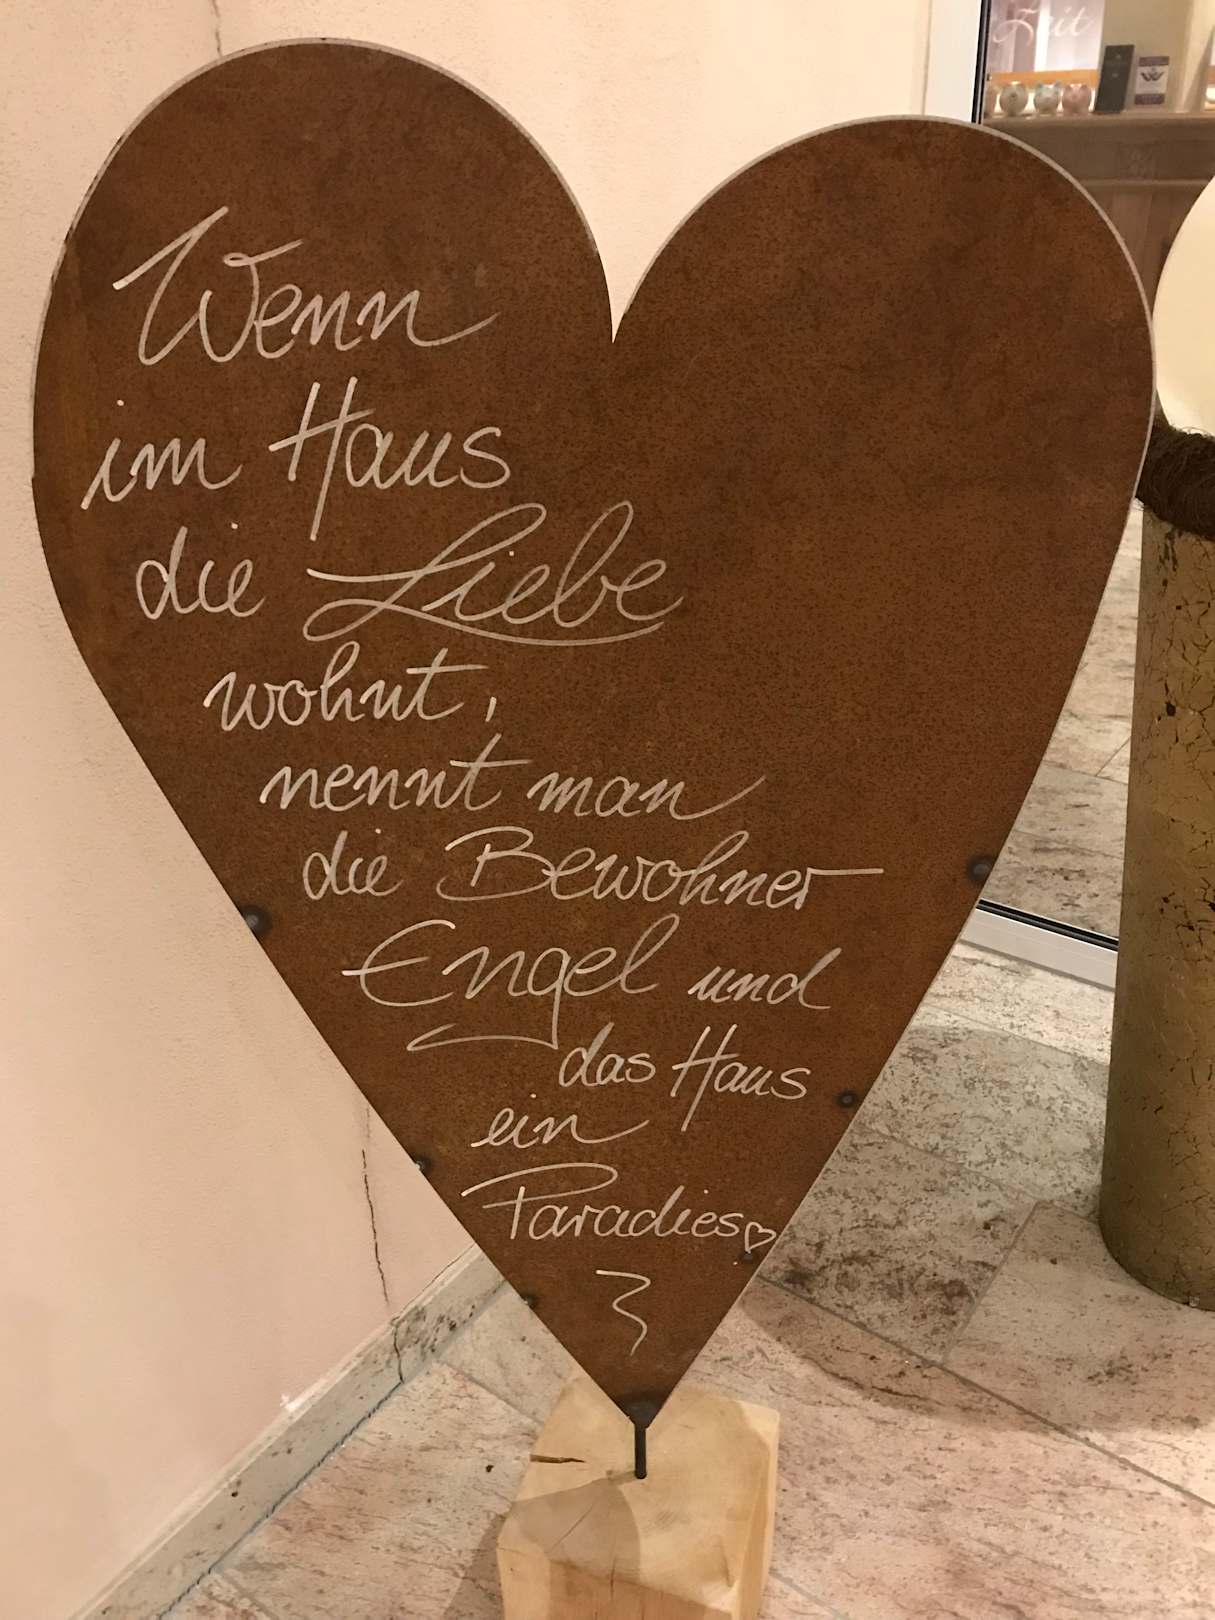 Zeit
Wenn
im Haus
die Liebe
wohnt,
nennt man
die Bewohner
Engel und
das Haus
ein
Paradies♡